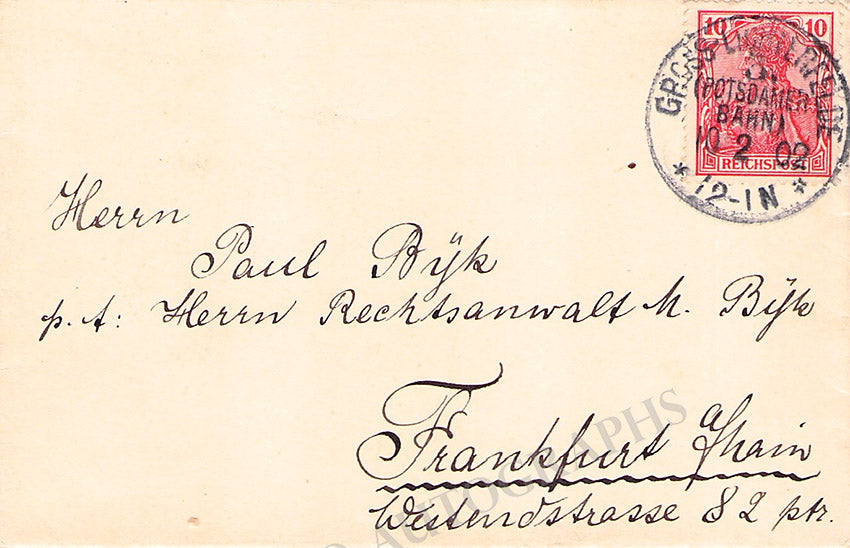 10 10
GROSS-LICHTERFELDE
3.
(POTSDAMER
BAHN)
10 2 02
* 12-1N *
REICHSPOST
Herrn
Paul Bÿk
p. A: Herrn Rechtsanwalt M. Bÿk
Frankfurt a/Main
Westendstrasse 82 ptr.
AUTOGRAPHS